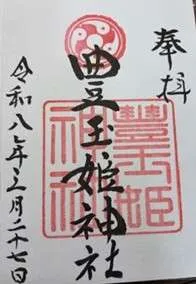 奉拝
豊玉姫神社
豊玉姫神社
令和八年三月二十七日